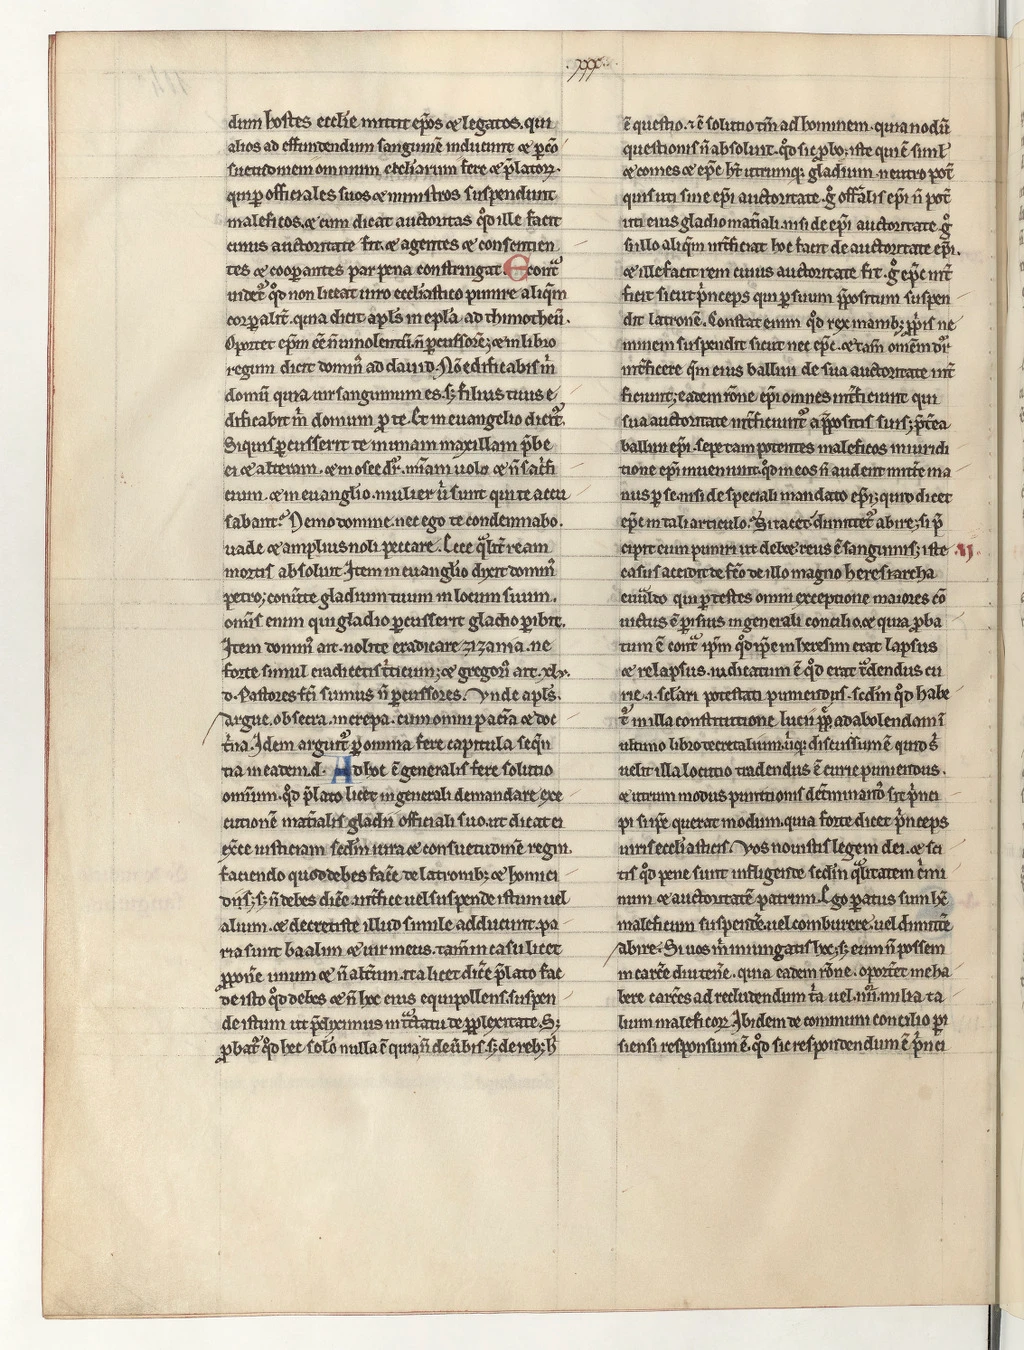 .xxx.
dum hostes ecclẽie mittit ep̃os ⁊ legatos. qui
alios ad effundendum sanguinẽ inducunt ⁊ ꝑ cõ
suetudinem omnium eccliarum fere ⁊ p̃latoꝝ.
qui ꝑ officiales suos ⁊ ministros suspendunt
maleficos. ⁊ cum dicat auctoritas qd̃ ille facit
cuius auctoritate fit. ⁊ agentes ⁊ consentien
tes ⁊ cooperantes par pena constringat. Econtͣ
uidet᷑ qd̃ non liceat uiro ecclẽiastico punire aliq̃m
corꝑalit̃. quia dicit apl̃s in epl̃a ad thimotheũ.
Oportet ep̃m ẽẽ ñ uiolentũ. ñ ꝑcussorẽ; ⁊ in libro
regum dicit domiñ ad dauid. Nõ edificabis m̃
domũ quia uir sanguinum es. sꝫ filius tuus e
dificabit m̃ domum ꝑ te. Et in euangelio dicit᷑.
Si quis ꝑcusserit te in unam maxillam p̃be
ei ⁊ alteram. ⁊ in osee dr̃. mĩam uolo ⁊ ñ sac̃fi
cium. ⁊ in euanglio. mulier ũ sunt qui te accu
sabant? Nemo domine. nec ego te condemnabo.
uade ⁊ amplius noli peccare. Ecce qͣlit̃ ream
mortis absoluit. Item in euanglio dixit domiñ
petro; conũte gladium tuum in locum suum.
omĩs enim qui gladio ꝑcusserit gladio ꝑibit.
Item domiñ ait. nolite eradicare zizania. ne
forte simul eradicetis t̃ticum; ⁊ gregoñ ait. xlv.
d. Pastores fc̃i sumus ñ ꝑcussores. Vnde apl̃s.
Argue. obsecra. increpa. cum omni paciã ⁊ doc
t̃na. Idem arguit᷑ ꝑ omnia fere capitula seq̃n
tia in eadem. d. Ad hoc ẽ generalis fere solutio
omĩum. qd̃ p̃lato licet in generali demandare exe
cutionẽ mat̃ialis gladii officiali suo. ut dicat ei
ex̃ce iusticiam scd̃m iura ⁊ consuetudinẽ regni.
faciendo quod debes fac̃e de latronibꝫ ⁊ homici
diis; sꝫ ñ debes dic̃e. int̃fice uel suspende istum uel
alium. ⁊ decretiste illud simile adducunt. pa
ria sunt baalim ⁊ uir meus. tam̃ in casu licet
ꝓpoñe unum ⁊ ñ alt̃um. ita licet dic̃e p̃lato fac
de isto qd̃ debes ⁊ ñ hoc eius equipollens. suspen
de istum ut p̃diximus in t̃ctatu de ꝑplexitate. Sꝫ
ꝓbat᷑ qd̃ hec solõ nulla ẽ quia ñ de ũbis. sꝫ de rebꝫ h̃
ẽ questio. ⁊ ẽ solutio tm̃ ad hominem. quia nodũ
questionis ñ absoluit. qd̃ sic ꝓbo; iste qui ẽ simĺ
⁊ comes ⁊ ep̃c h̃t utrumqꝫ gladium. neutro pot̃
quis uti sine ep̃i auctoritate. g̊ offic̃alis ep̃i ñ pot̃
uti eius gladio mat̃iali. nisi de ep̃i auctoritate. g̊
si illo aliq̃m int̃ficiat hoc facit de auctoritate ep̃i.
⁊ ille facit rem cuius auctoritate fit. g̊ ep̃c int̃
ficit sicut p̃nceps qui ꝑ suum p̃positum suspen
dit latronẽ. Constat enim qd̃ rex manibꝫ ꝓpiis ne
minem suspendit sicut nec ep̃c. ⁊ tam̃ omẽm dr̃
int̃ficere q̃m eius balliui de sua auctoritate int̃
ficiunt; eadem rõne ep̃i omnes int̃ficiunt qui
sua auctoritate int̃ficiunt᷑ a p̃positis suis; p̃t̃ea
balliui ep̃i. sepe tam potentes maleficos in iuridi
tione ep̃i inueniunt. qd̃ in eos ñ audent mitt̃e ma
nus ꝑ se. nisi de speciali mandato ep̃i; quid dicet
ep̃c in tali articulo. Si tacet dimittet᷑ abire; si p̃
cipit eum puniri ut debet reus ẽ sanguinis; iste
casus accidit de fc̃o de illo magno heresiarcha
euũldo qui ꝑ testes omni exceptione maiores cõ
uictus ẽ pisius in generali concilio. ⁊ quia ꝓba
tum ẽ contͣ ip̃m qd̃ ip̃e in heresim erat lapsus
⁊ relapsus. iudicatum ẽ qd̃ erat t̃dendus cu
rie .i. sclari potestati puniendus. scd̃m qd̃ habe
t᷑ in illa constitutione lucii pp̃ ad abolendam ĩ
ultimo libro decretalium. ũq; discussum ẽ quid s̃
uelit illa locutio tradendus ẽ curie puniendus.
⁊ utrum modus punitionis det̃minand᷑ sit p̃nci
pi. sup̃e querat modum. quia forte dicet p̃nceps
uiris eccl̃iasticis. Vos nouistis legem dei. ⁊ sci
tis qd̃ pene sunt infligende scd̃m qͣlitatem c̃mi
num ⁊ auctoritatẽ patrum. Ego paratus sum h̃c
maleficum suspend̃e. uel comburere. uel dimitt̃e
abire. Si uos m̃ iniungatis hoc; sꝫ eum ñ possem
in carc̃e diu ten̾e. quia eadem rõne. oport̃et me ha
bere carc̃es ad recludendum t̃a uel .iiii. milia ta
lium maleficoꝝ. Ibidem de communi concilio pi
siensi responsum ẽ. qd̃ sic respondendum ẽ p̃nci